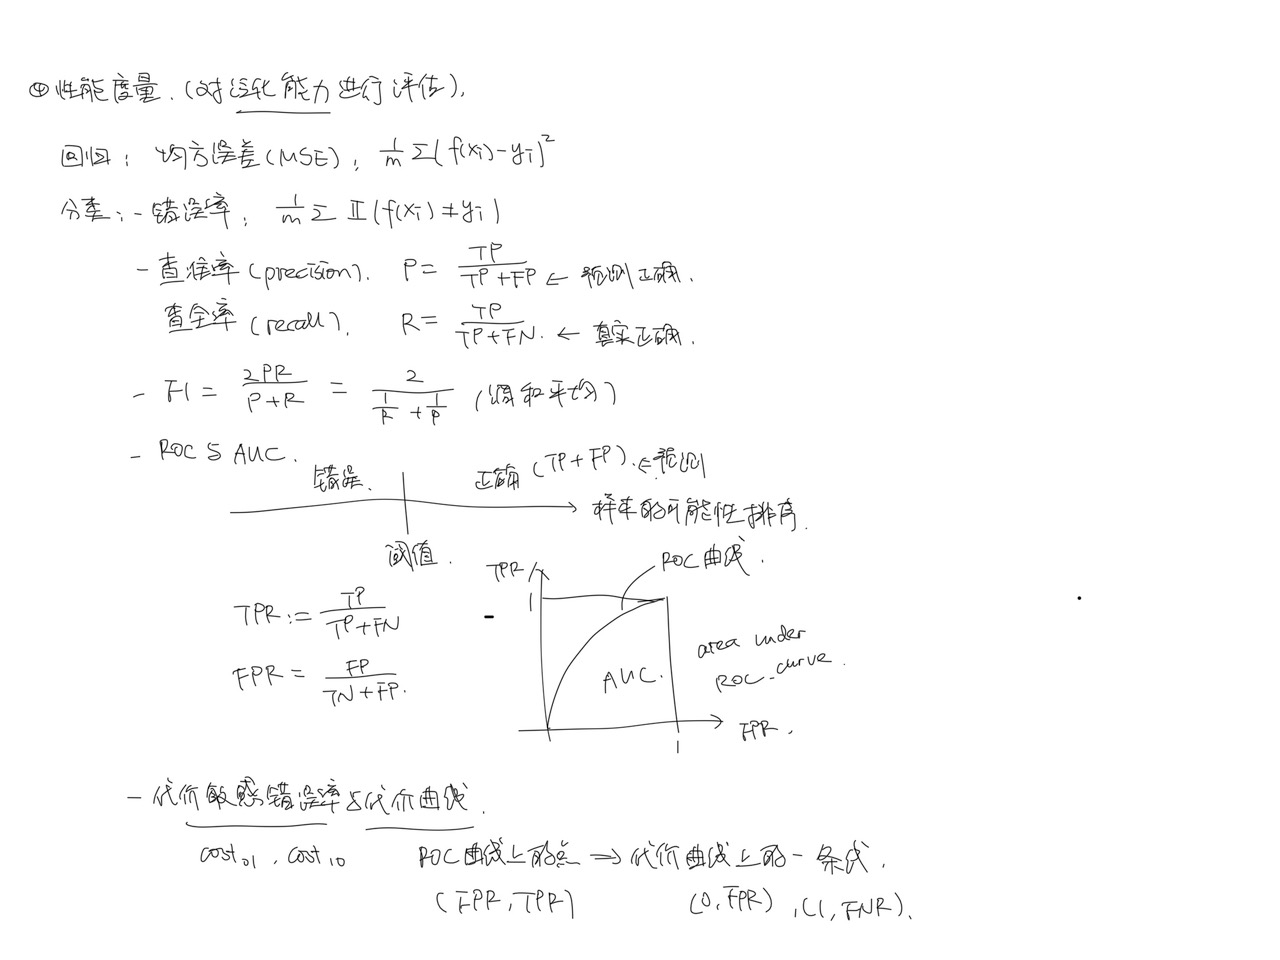 ④ 性能度量.(对泛化能力进行评估).
回归: 均方误差(MSE), 1/m Σ(f(xi)-yi)²
分类: - 错误率, 1/m Σ 𝕀(f(xi)≠yi)
- 查准率(precision). P = TP/(TP+FP) ← 预测正确.
查全率(recall). R = TP/(TP+FN) ← 真实正确.
- F1 = 2PR/(P+R) = 2/(1/R + 1/P) (调和平均)
- ROC与AUC.
错误. 正确(TP+FP). ← 预测
样本的可能性排序.
阈值.
ROC曲线.
TPR
1
TPR := TP/(TP+FN)
FPR = FP/(TN+FP).
AUC.
area under
ROC-curve.
FPR.
1
- 代价敏感错误率与代价曲线.
cost01, cost10 ROC曲线上的点 ⇒ 代价曲线上的一条线.
(FPR,TPR) (0,FPR),(1,FNR).